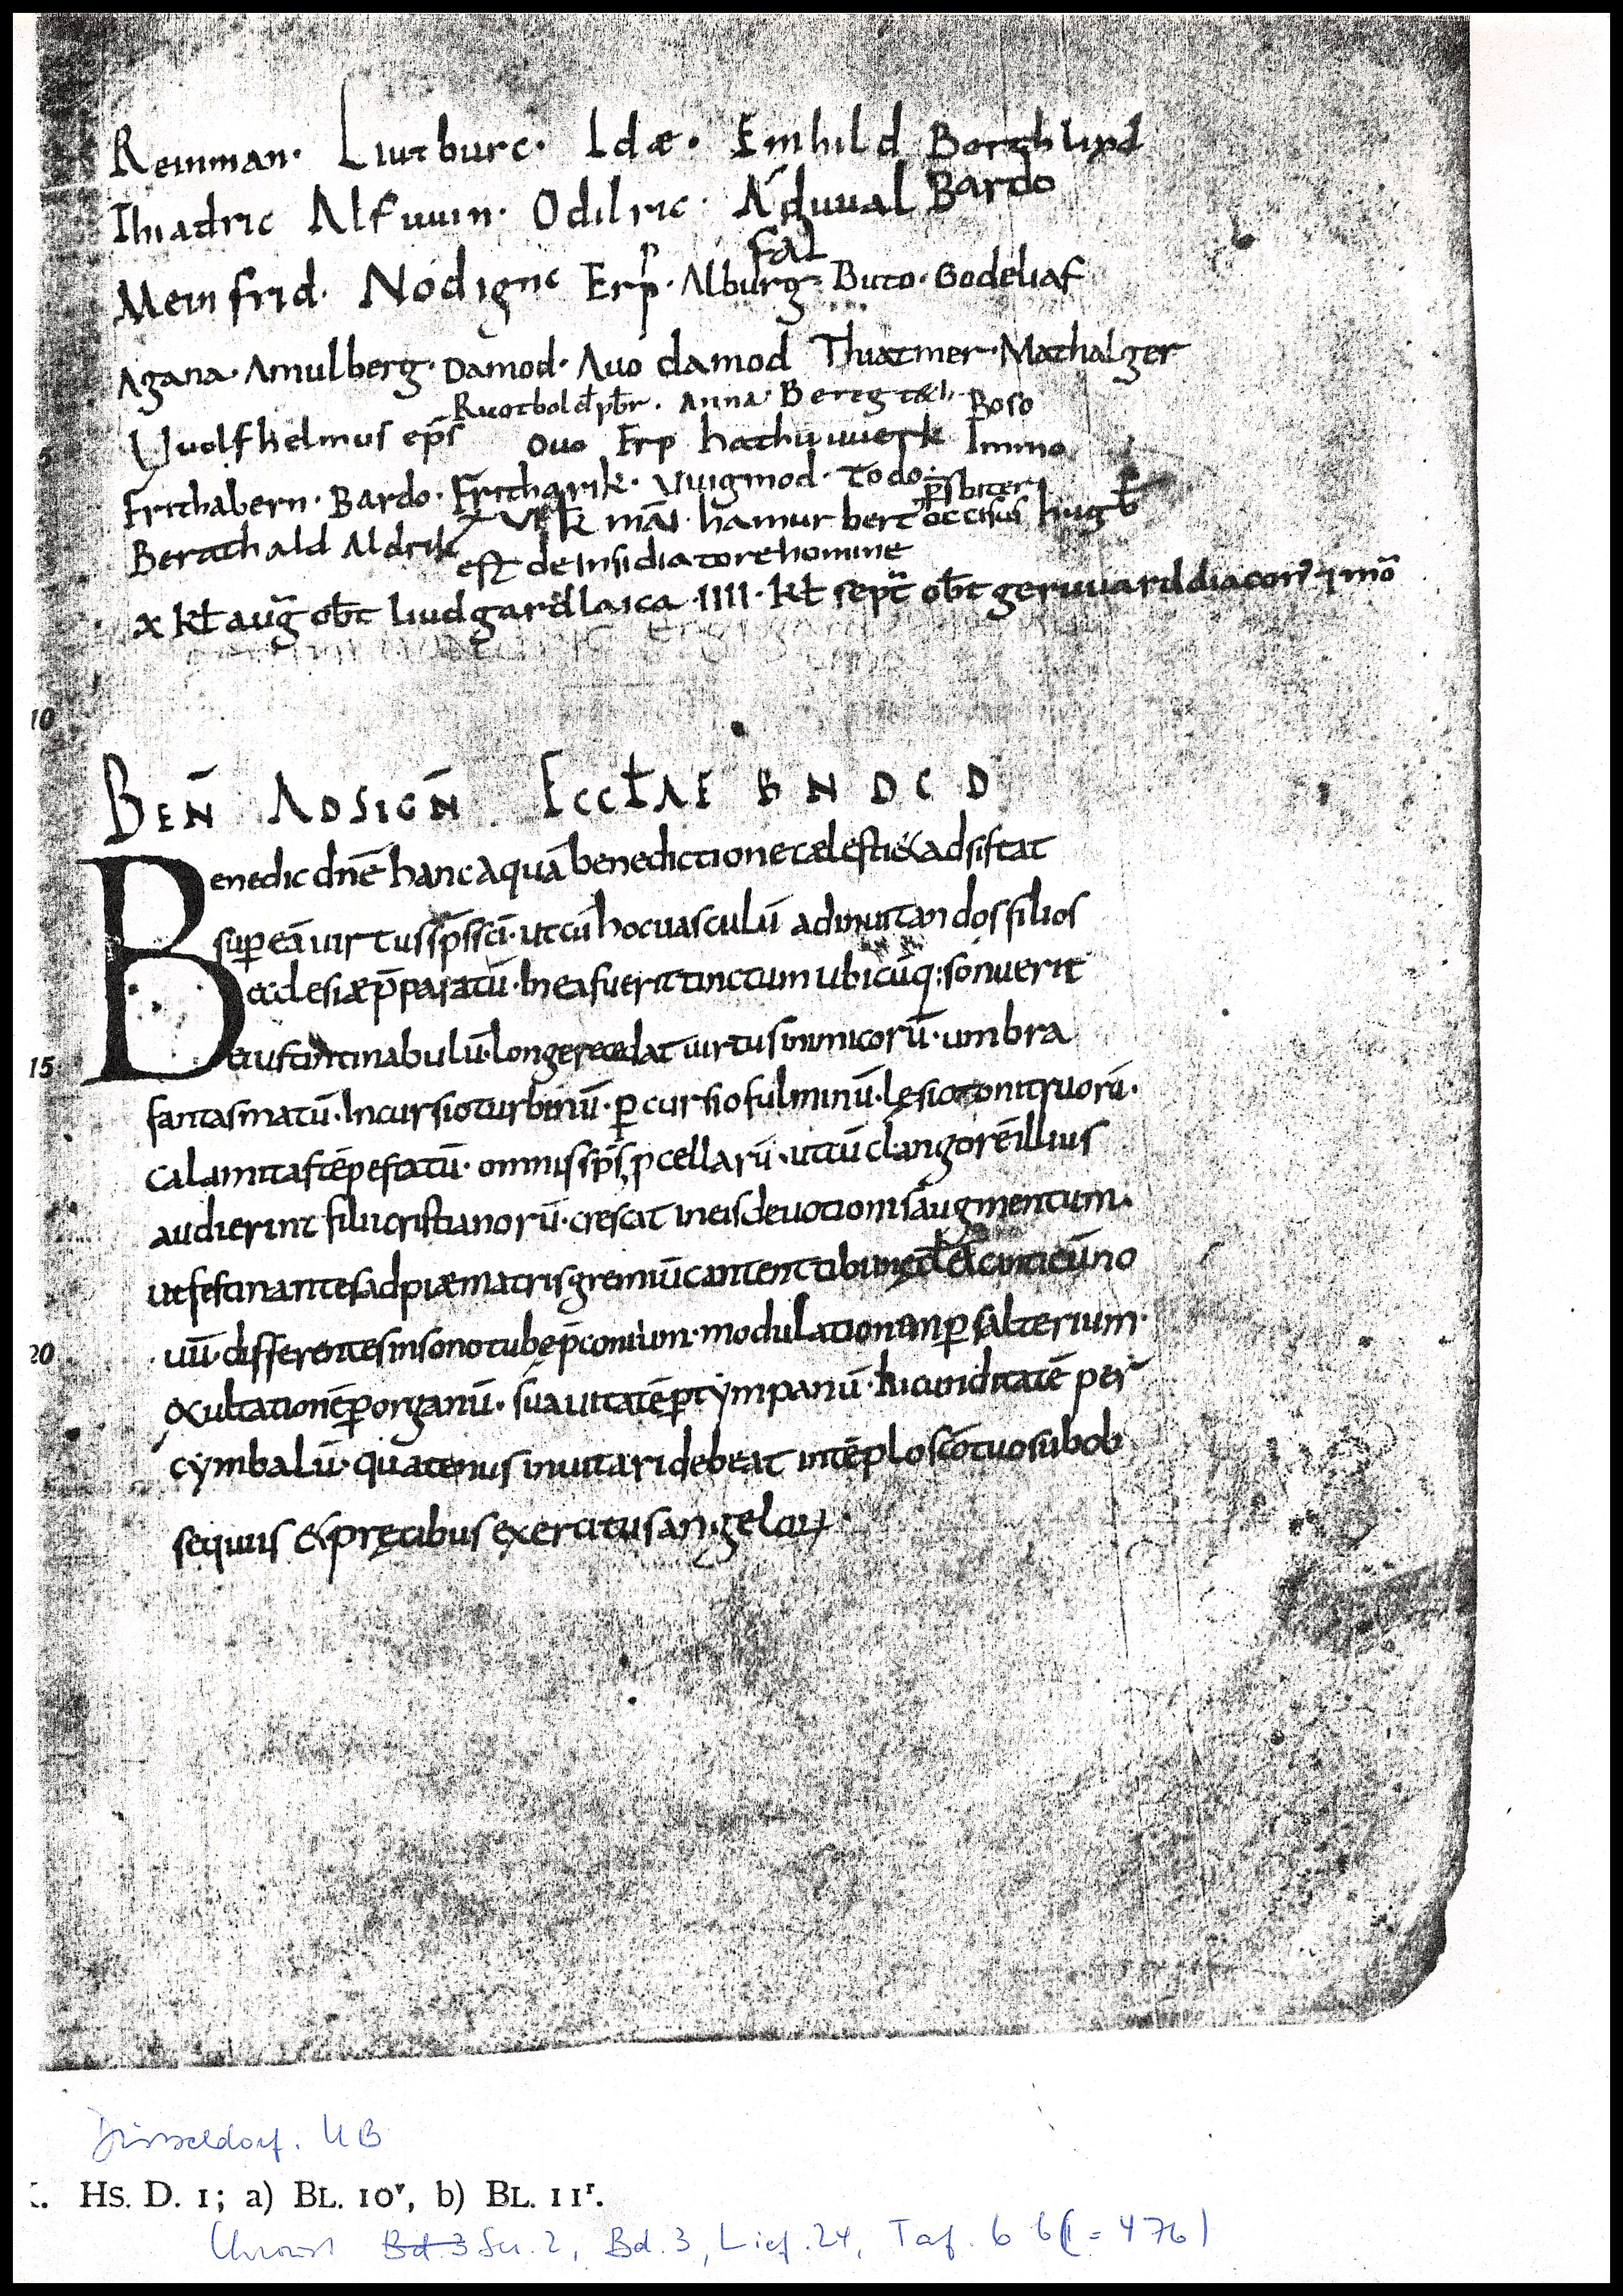 Reinman· Liutburc· Idæ· Emhild Borthlind
Thiadric Alfuuin· Odilric· Aduual Bardo
fal
Meinfrid· Nodignc Erp· Alburg· Buto· Godeliaf
Agana· Amulberg· Damod· Auo damod Thiatmer· Mathalger
Ruotbold p̄br· Anna· Boso
Uuolfhelmus ep̄s Ouo Erp hathuuuerk Immo
Frithabern· Bardo· Fritharik· Uuigmod· Todo· p̄sbiter
Berathald Aldrik VI k mai· hamurbert occisus hug
est de insidiatore homine
x kł aug̃ obt̄ liudgard laica· IIII· kł sept̃ obt̄ geruuard diacon
10
BEÑ AD SIGÑ ECCŁAE B N D C D
Benedic dn̄e hanc aquā benedictione cælesti & adsistat
sup eā uirtus sp̄s sc̄i· ut cū hoc uasculū ad inuitandos filios
ecclesiæ p̄paratū· In ea fuerit tinctum ubicūq; sonuerit
15 eius tintinabulū· longe recedat uirtus inimicorū· umbra
fantasmatū· Incursio turbinū· ꝑcursio fulminū· lęsio tonitruorū·
calamitas tēpestatū· omnis sp̄s ꝓcellarū· ut cū clangorē illius
audierint filii cristianorū· crescat in eis deuotionis augmentum·
ut festinantes ad piæ matris gremiū cantent tibi cāticū no
20 uū· differentes in sono tubę p̄conium· modulationem ꝑ salterium·
exultationē ꝑ organū· suauitatē ꝑ tympanū· Iucunditatē per
cymbalū· quatenus inuitari debeat in tēplo sc̄o tuo suis ob
sequiis & pręcibus exercitus angeloꝝ·
Düsseldorf. UB
Hs. D. 1; a) Bl. 10ᵛ, b) Bl. 11ʳ.
Chroust Ser. 2, Bd. 3, Lief. 24, Taf. 6 b (= 476)